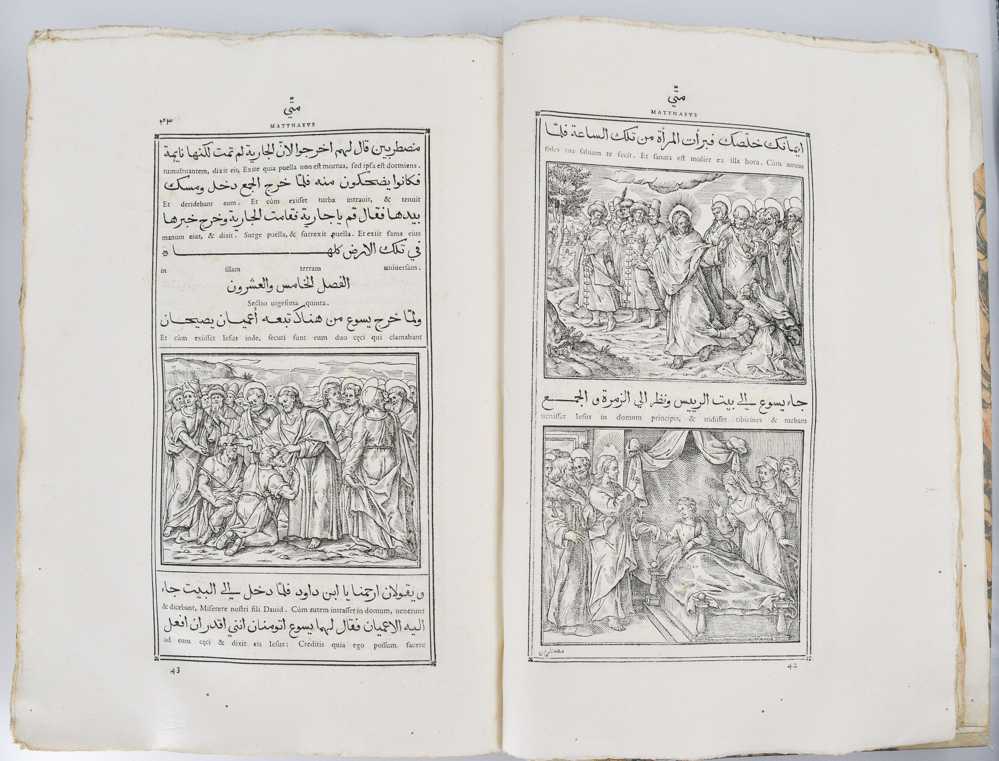 متّي
MATTHAEVS
ايمانك خلصك فبرأت المرأة من تلك الساعة فلمّا
fides tua saluam te fecit. Et sanata est mulier ex illa hora. Cùm autem
جاء يسوع الي بيت الرييس ونظر الي الزمرة و الجمع
uenisset Iesus in domum principis, & uidisset tibicines & turbam
متّي
MATTHAEVS
مضطربين قال لهم اخرجوا لانّ الجارية لم تمت لكنّها نايمة
tumultuantem, dixit eis, Exite quia puella non est mortua, sed ipsa est dormiens.
فكانوا يضحكون منه فلمّا خرج الجمع دخل ومسك
Et deridebant eum. Et cùm exisset turba intrauit, & tenuit
بيدها فقال قم يا جارية فقامت الجارية وخرج خبرها
manum eius, & dixit. Surge puella, & surrexit puella. Et exiit fama eius
في تلك الارض كلها
in illam terram uniuersam.
الفصل الخامس والعشرون
Sectio uigesima quinta.
ولمّا خرج يسوع من هناك تبعه أعميان يصيحان
Et cùm exisset Iesus inde, secuti sunt eum duo cęci qui clamabant
ويقولان ارحمنا يا ابن داود فلمّا دخل الي البيت جاء
& dicebant, Miserere nostri fili Dauid. Cùm autem intrasset in domum, uenerunt
اليه الاعميان فقال لهما يسوع اتومنان انني اقدر ان افعل
ad eum cęci & dixit eis Iesus: Creditis quia ego possum facere